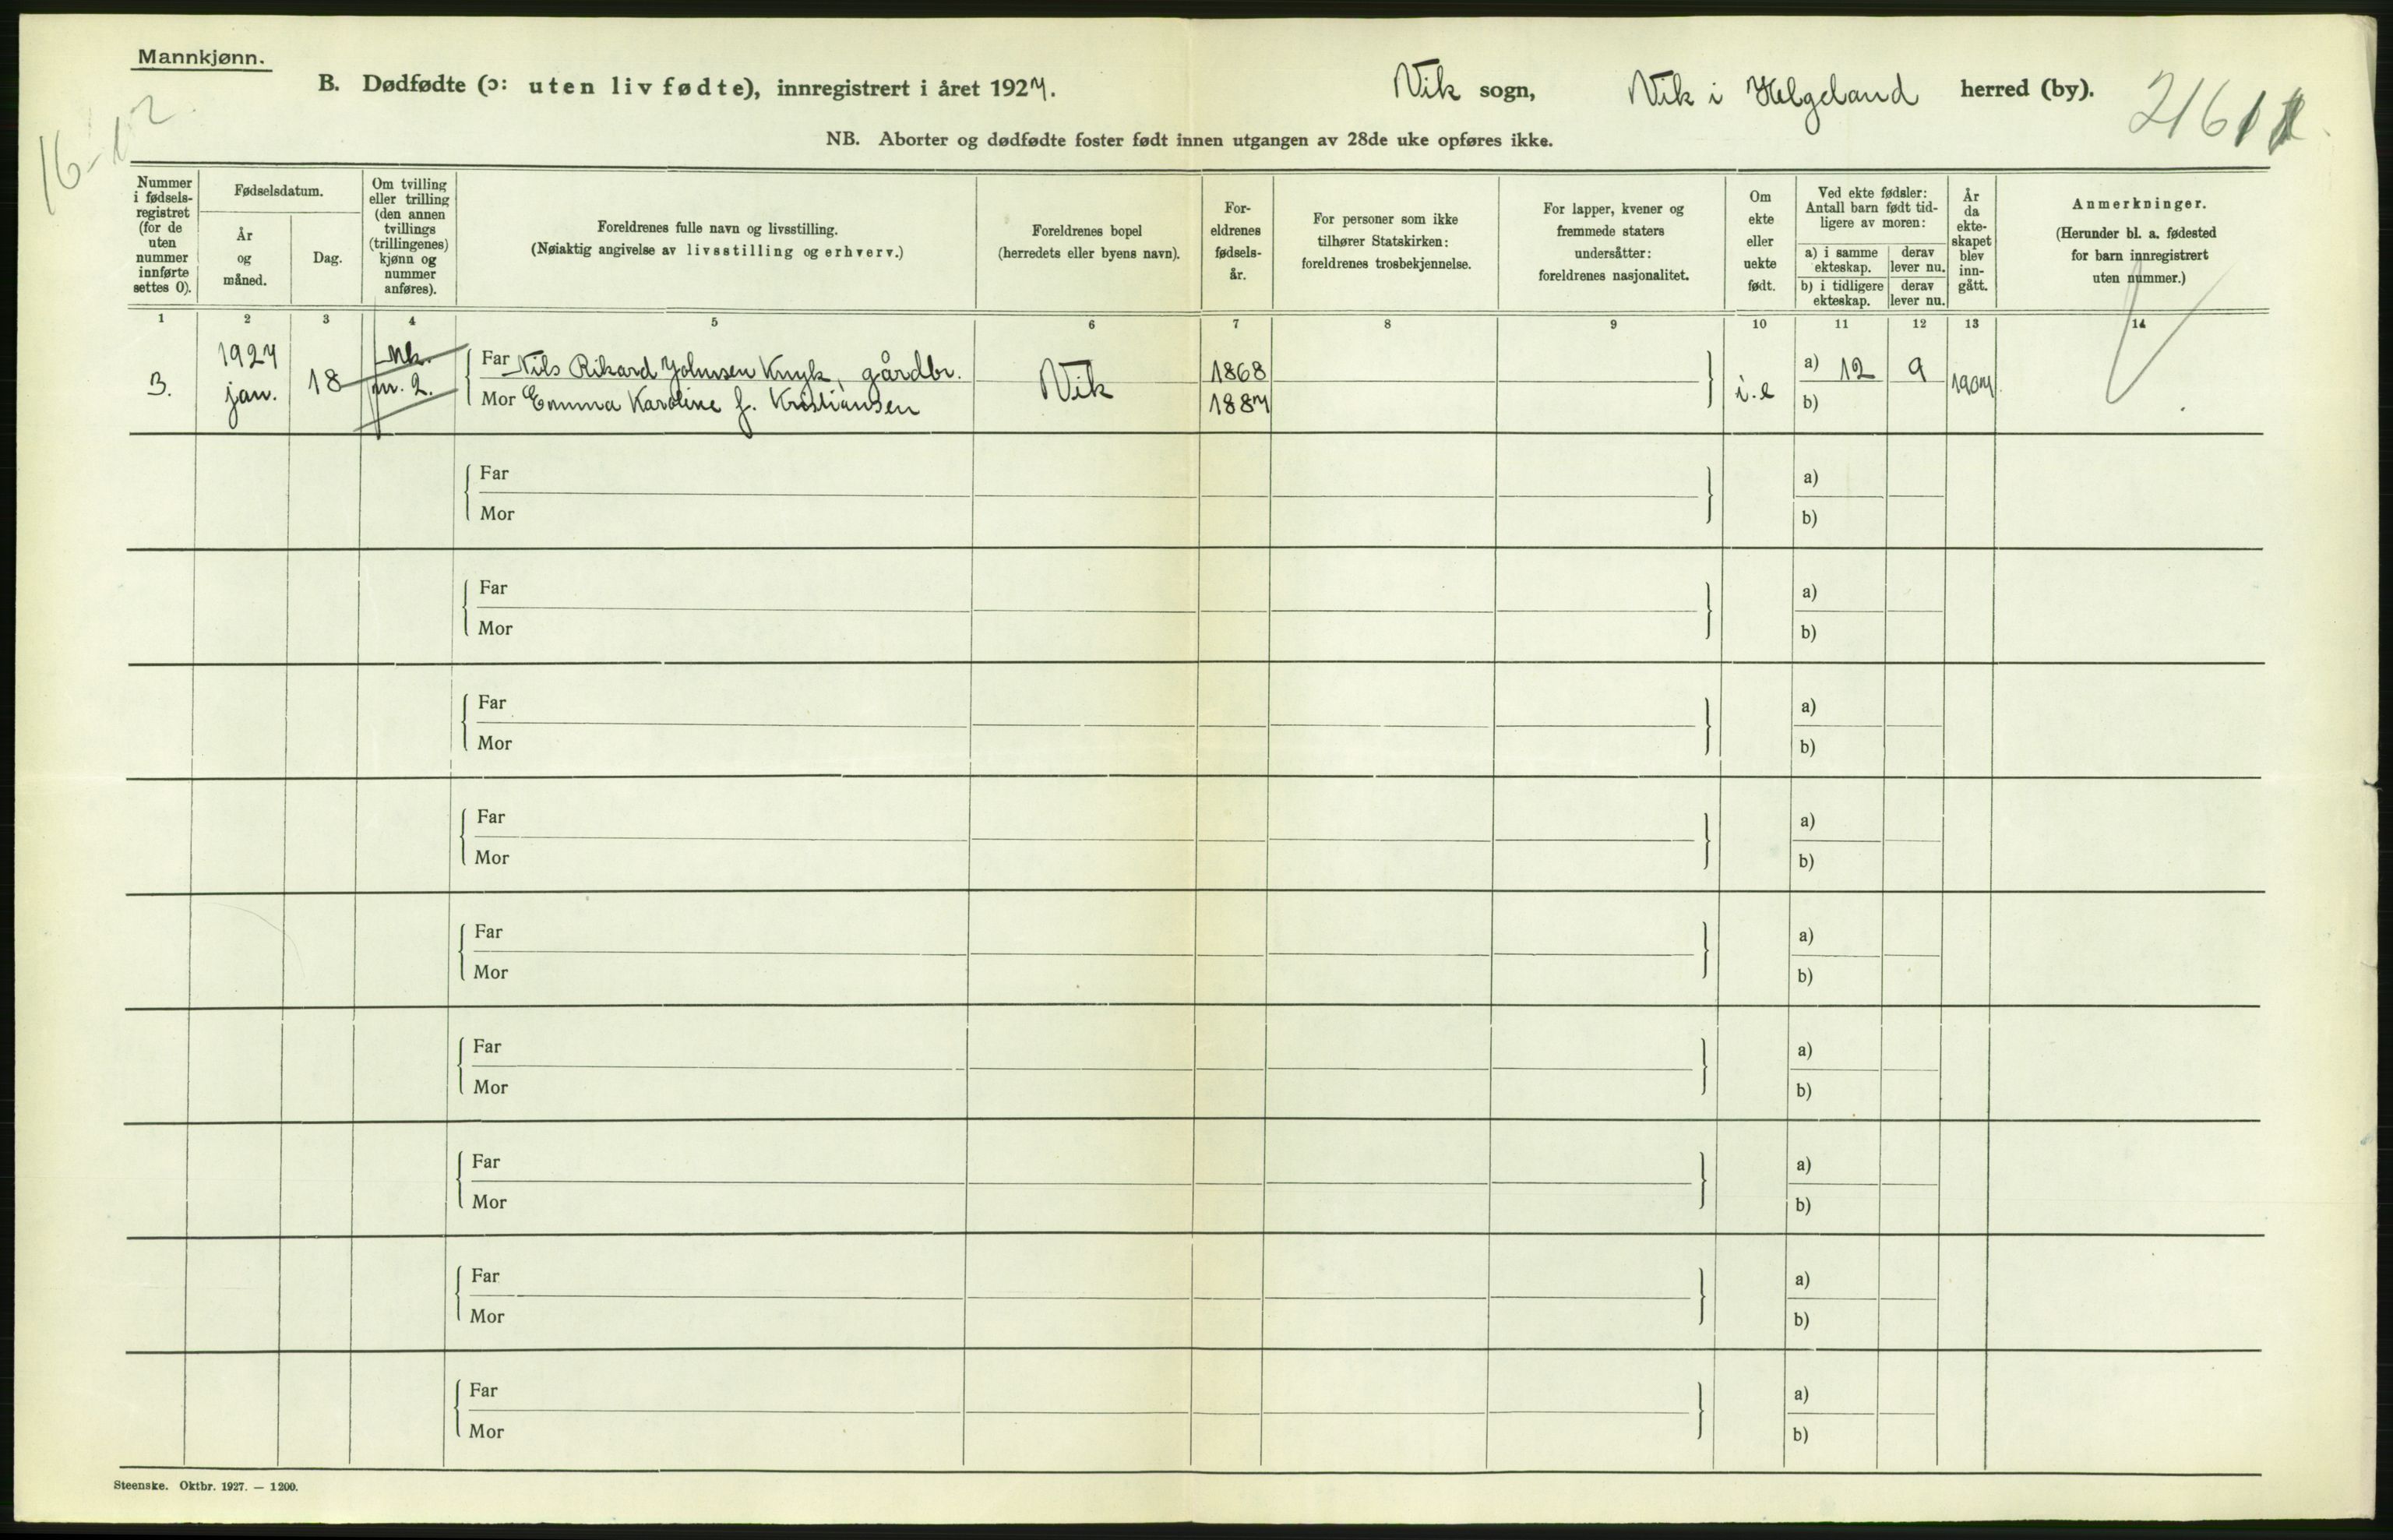 Mannkjønn.
B. Dødfødte (ɔ: uten liv fødte), innregistrert i året 1927. Vik sogn, Vik i Helgeland herred (by).
16-12.
NB. Aborter og dødfødte foster født innen utgangen av 28de uke opføres ikke.
Nummer i fødsels-registret (for de uten nummer innførte settes 0).
Fødselsdatum.
År og måned.
Dag.
Om tvilling eller trilling (den annen tvillings (trillingenes) kjønn og nummer anføres).
Foreldrenes fulle navn og livsstilling.
(Nøiaktig angivelse av livsstilling og erhverv.)
Foreldrenes bopel
(herredets eller byens navn).
For-eldrenes fødsels-år.
For personer som ikke tilhører Statskirken: foreldrenes trosbekjennelse.
For lapper, kvener og fremmede staters undersåtter: foreldrenes nasjonalitet.
Om ekte eller uekte født.
Ved ekte fødsler: Antall barn født tid-ligere av moren:
a) i samme ekteskap.
derav lever nu.
b) i tidligere ekteskap.
derav lever nu.
År da ekte-skapet blev inn-gått.
Anmerkninger.
(Herunder bl. a. fødested for barn innregistrert uten nummer.)
1 2 3 4 5 6 7 8 9 10 11 12 13 14
3. 1927 jan. 18 nr. 2.
Far Nils Rikard Johnsen Knyk, gårdbr. Vik 1868 i.e a) 12 9 1907
Mor Emma Karoline f. Kristiansen 1887 b)
Far a)
Mor b)
Far a)
Mor b)
Far a)
Mor b)
Far a)
Mor b)
Far a)
Mor b)
Far a)
Mor b)
Far a)
Mor b)
Far a)
Mor b)
Far a)
Mor b)
Steenske. Oktbr. 1927. — 1200.